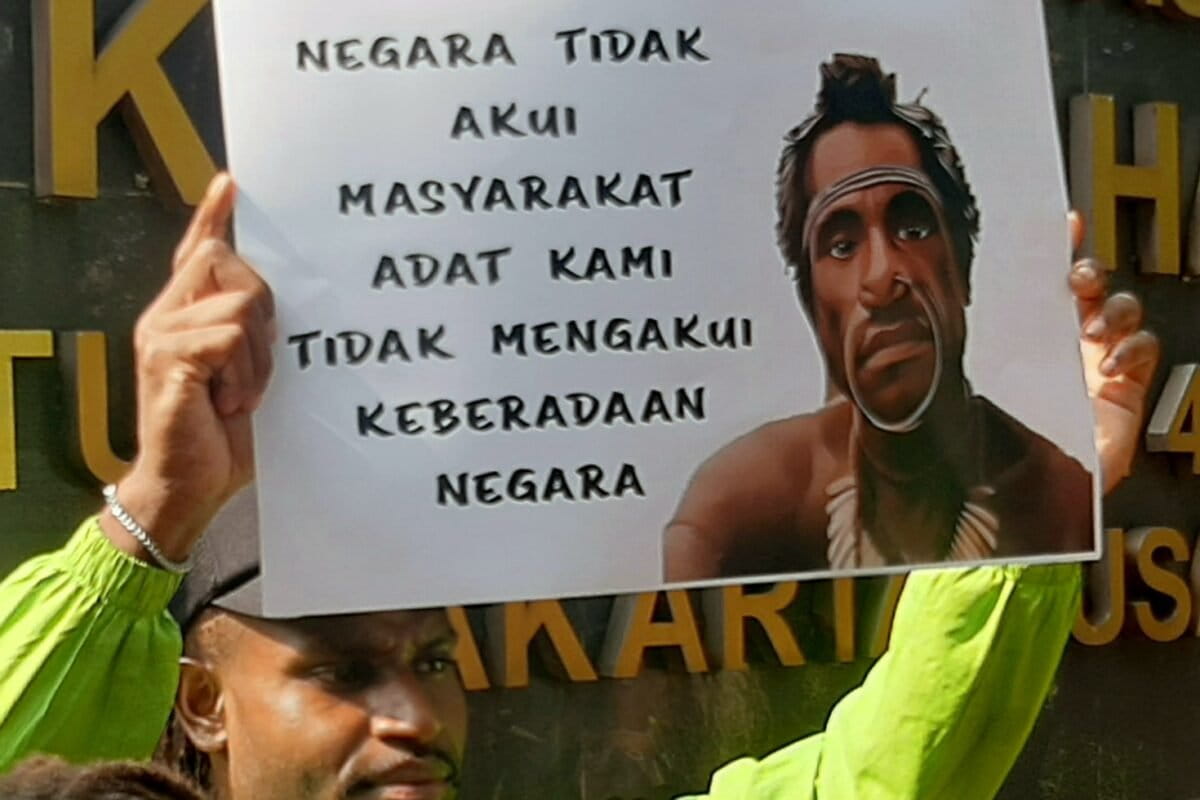 NEGARA TIDAK
AKUI
MASYARAKAT
ADAT KAMI
TIDAK MENGAKUI
KEBERADAAN
NEGARA
K
HA
TU
4
AKARTA
US